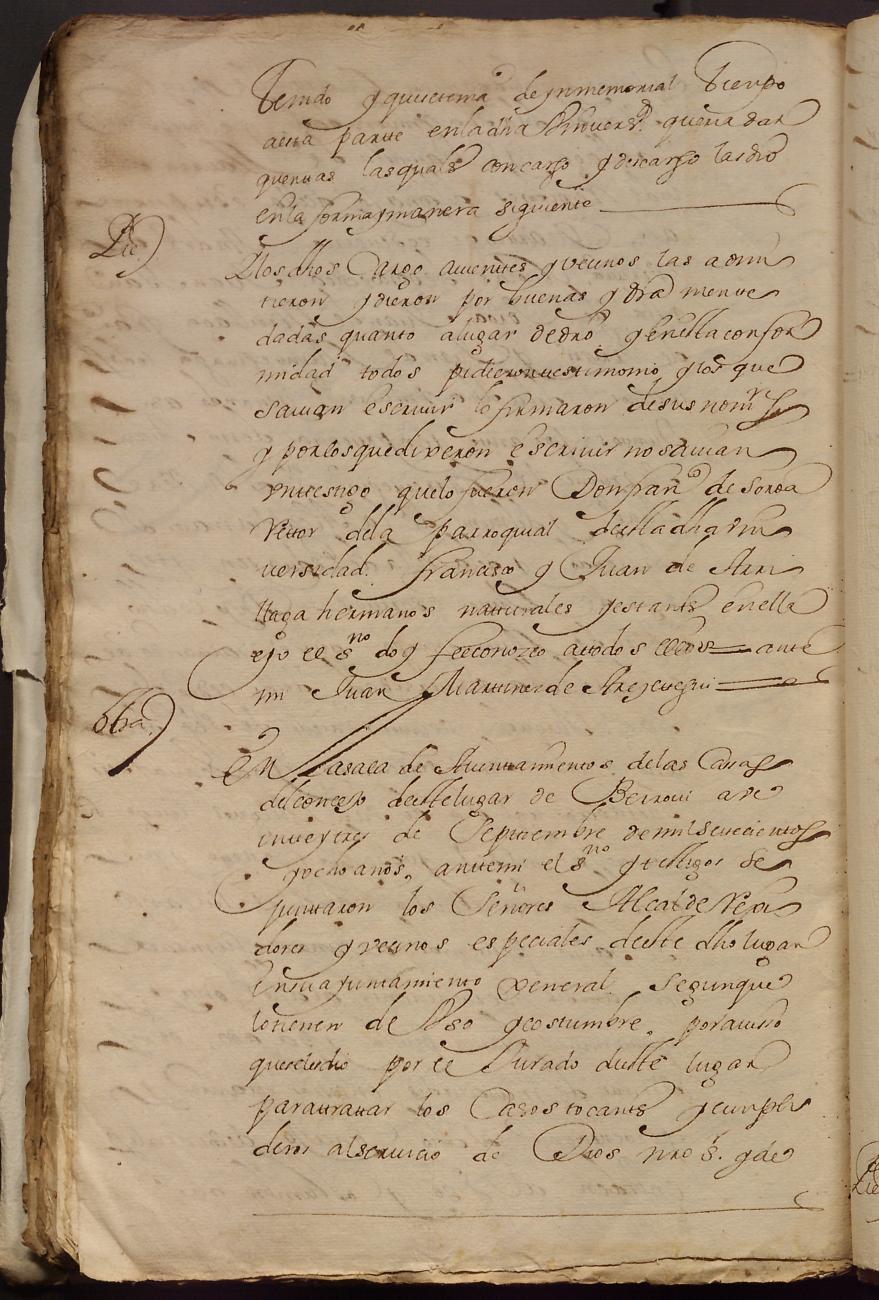 tenido y quieta mã de ynmemorial tienpo
aesta parte enla dha Vnivers.d queria dar
quentas las quals con cargo y descargo las dio
enla forma y manera siguiente
Pie)
Ylos dhos Cargo auientes y vecinos las admi
tieron y dieron por buenas y dra mente
dadas quanto alugar dedro. y enella confor
midad todos pidieron testimonio y los que
sauian escriuir lo firmaron de sus nonvrs
y por los que dixeron escriuir no sauian
vn testigo que lo fueron Don fran.co de Soroa
Retor dela parroquial desta dha vni
uersidad. francisco y Juan de Arri
llaga hermanos naturales y estants en ella
e yo el s.no doy fee conozco a todos ellos = ante
mi Juan Martines de Arejeregui =
Otra)
En la sala de Ayuntamientos de las Casas
del concejo deste lugar de Berroui a ve
inte y tres de Septiembre de mil setecientos
y ocho anos, ante mi el s.no y testigos se
juntaron los Señores Alcalde Rexi
dores y vecinos especiales deste dho lugar
en su ajuntamiento general segun que
lo tienen de Vso y costumbre, por auiso
que se les dio por el Jurado deste lugar
para trattar los Casos tocants y cunpli
deros al seruicio de Dios nro S. y de